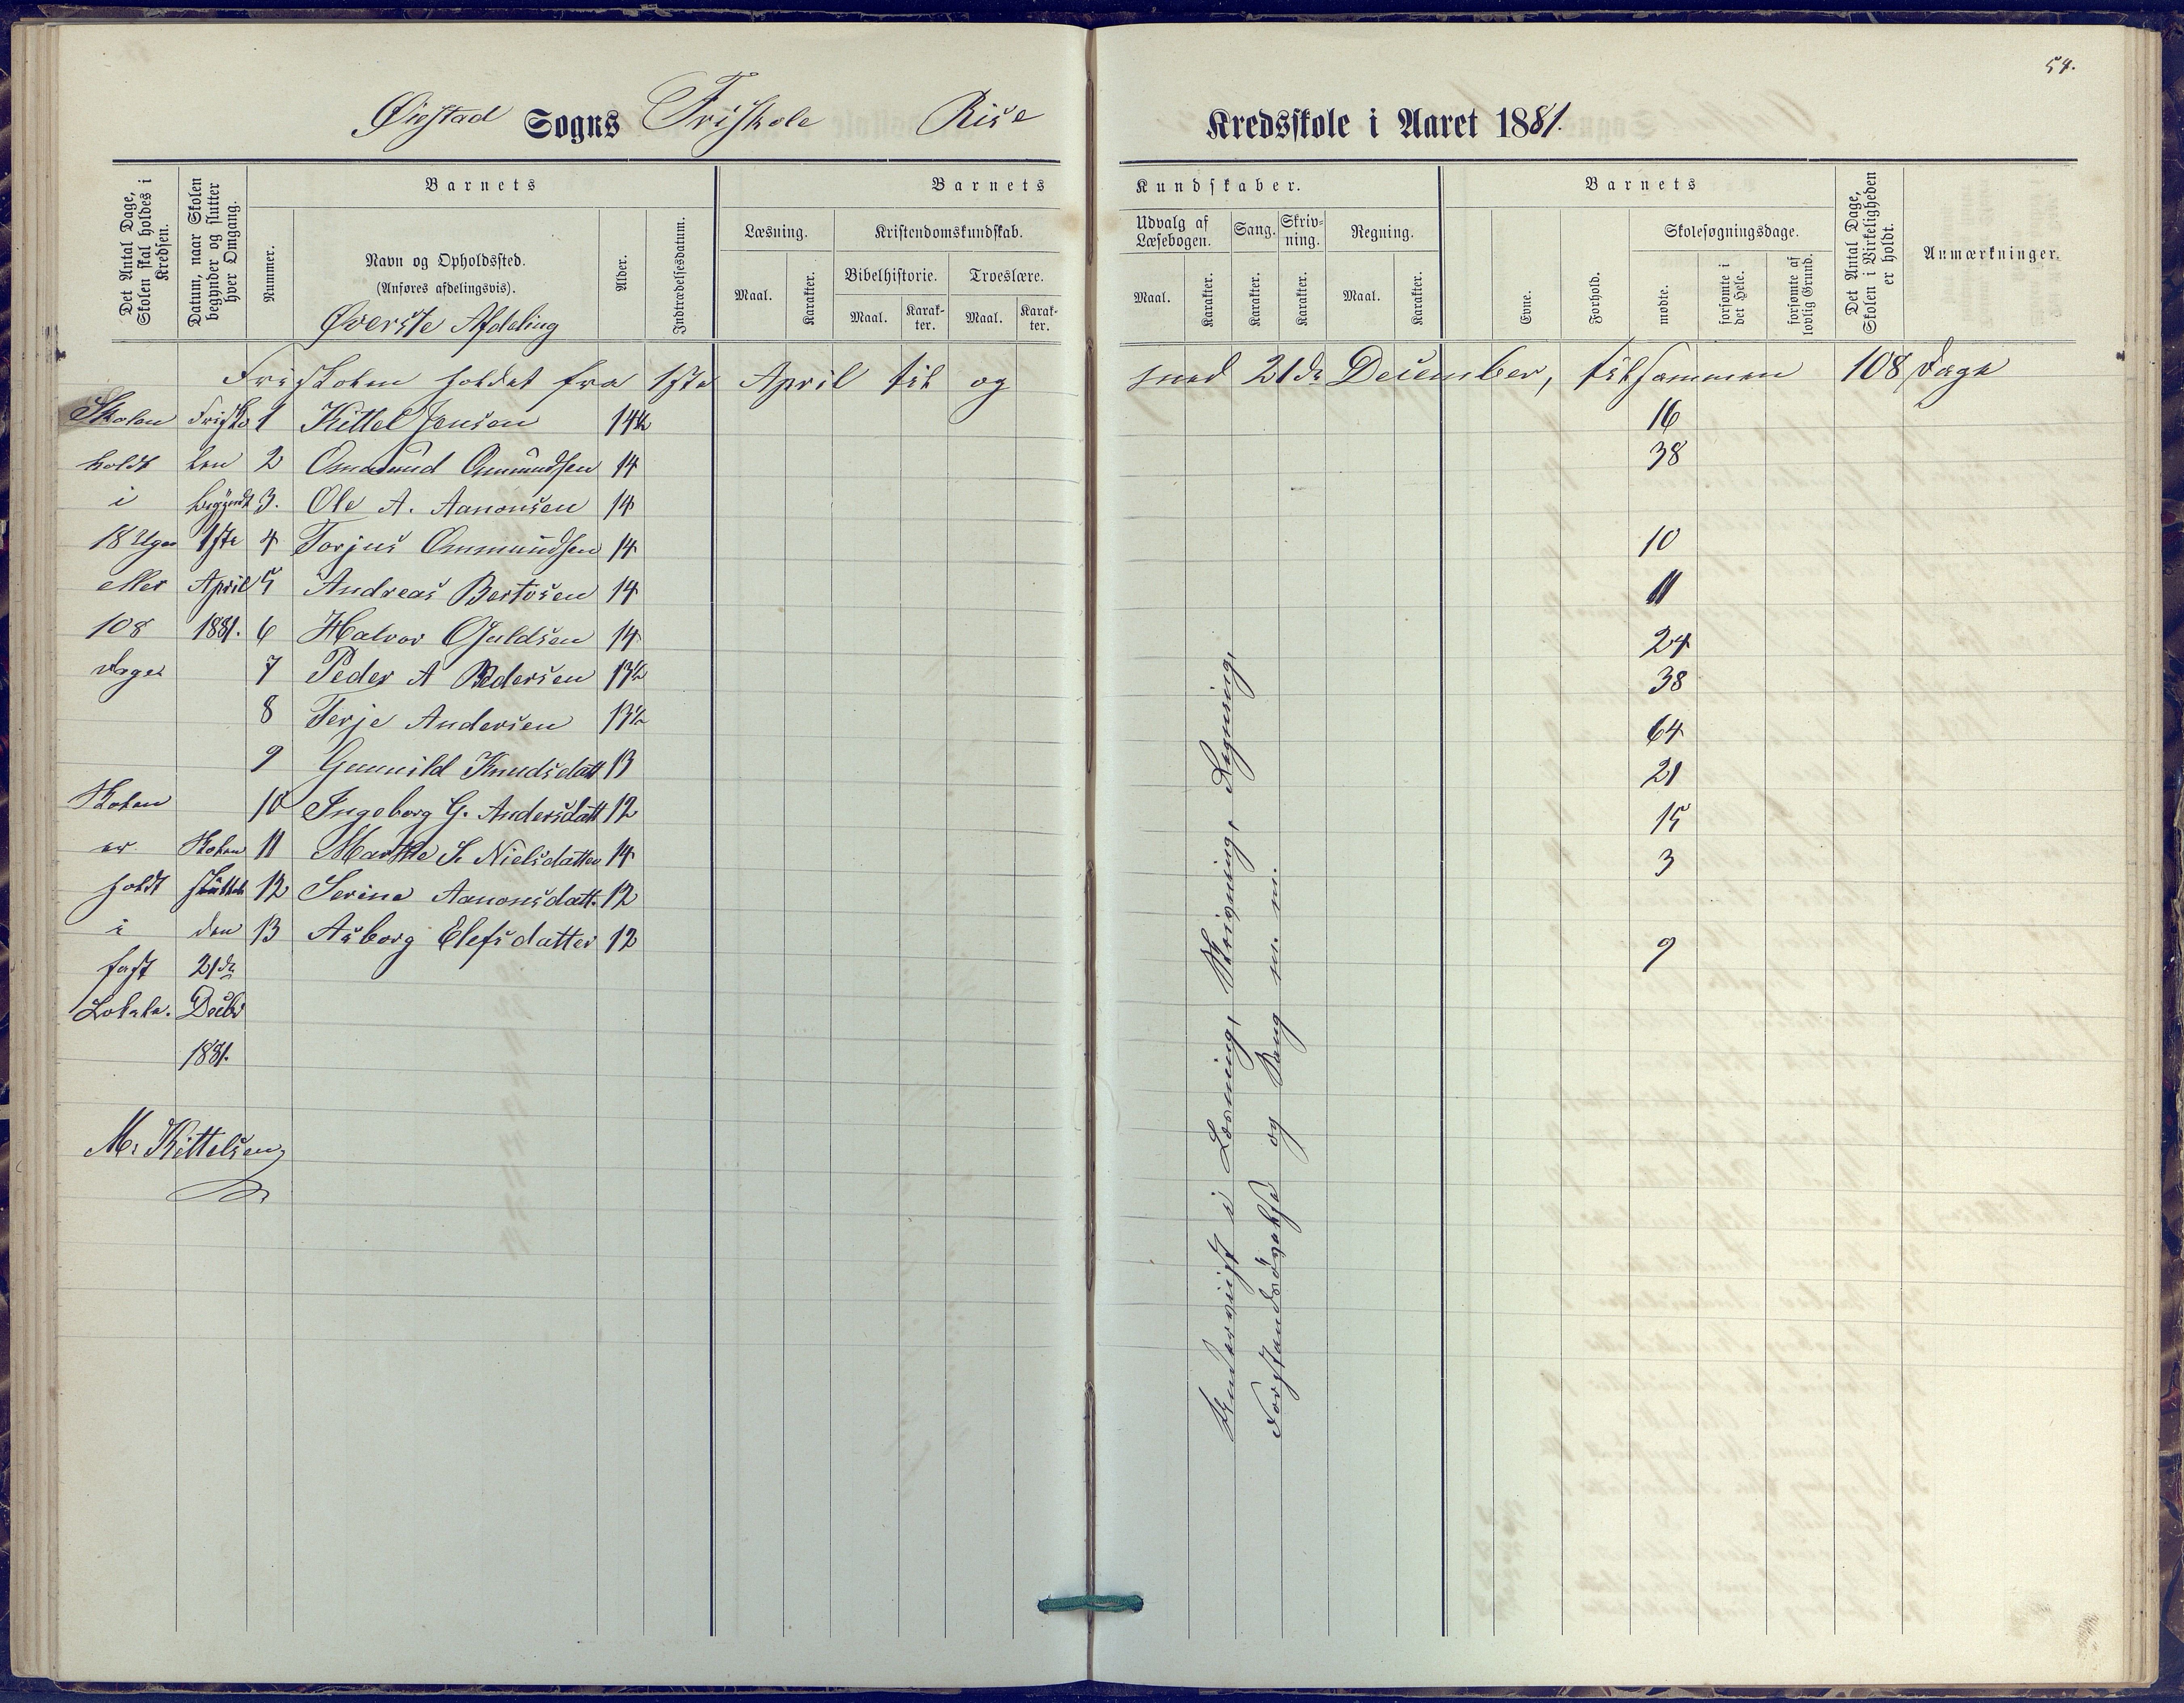 54.
Øiestad Sogns Friskole Rise Kredsskole i Aaret 1881.
Det Antal Dage, Skolen skal holdes i Kredsen.
Datum, naar Skolen begynder og slutter hver Omgang.
Barnets
Nummer.
Navn og Opholdssted.
(Anføres afdelingsvis).
Øverste Afdeling
Alder.
Indtrædelsesdatum.
Barnets Kundskaber.
Læsning.
Maal.
Karakter.
Kristendomskundskab.
Bibelhistorie.
Maal.
Karakter.
Troeslære.
Maal.
Karakter.
Udvalg af Læsebogen.
Maal.
Karakter.
Sang.
Karakter.
Skrivning.
Karakter.
Regning.
Maal.
Karakter.
Barnets
Evne.
Forhold.
Skolesøgningsdage.
mødte.
forsømte i det Hele.
forsømte af lovlig Grund.
Det Antal Dage, Skolen i Virkeligheden er holdt.
Anmærkninger.
Friskolen holdet fra 1ste April til og med 21de December, tilsammen 108 Dage
Skolen Frisko 1 Kittel Jensen 14½ 16
holdt len 2 Ommund Ommundsen 14 38
i begyndt 3. Ole A. Aanonsen 14
18 Uger 1ste 4 Torjus Ommundsen 14 10
eller April 5 Andreas Bertosen 14 11
108 1881. 6 Halvor Guldsen 14 24
Dage 7 Peder A Pedersen 13½ 38
8 Terje Andersen 13½ 64
9 Gunnild Knudsdatt 13 21
Skolen 10 Ingeborg G. Andersdatt 12 15
er Skolen 11 Marthe S. Nielsdatter 14 3
holdt sluttet 12 Serine Aanonsdatt. 12
i den 13 Asborg Elefsdatter 12 9
fast 21de
Lokale. Decbr
1881.
M. Kittelsen
Underviist i Læsning, Skrivning, Regning,
Forstandsøvelse og Sang m. m.